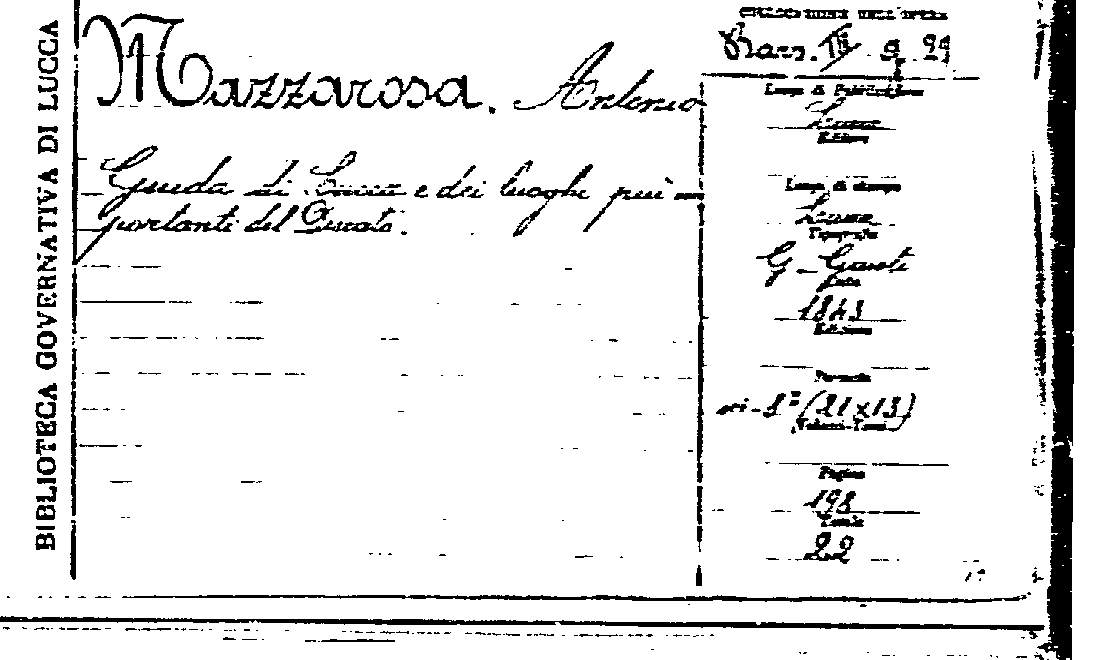 BIBLIOTECA GOVERNATIVA DI LUCCA
Mazzarosa. Antonio
Guida di Lucca e dei luoghi più im-
portanti del Ducato.
COLLOCAZIONE DELL'OPERA
Luogo di Pubblicazione
Lucca
Editore
Luogo di stampa
Lucca
Tipografia
G. Giusti
Data
1843
Edizione
Formato
in-8° (21x13)
Volumi-Tomi
Pagine
198
Tavole
22